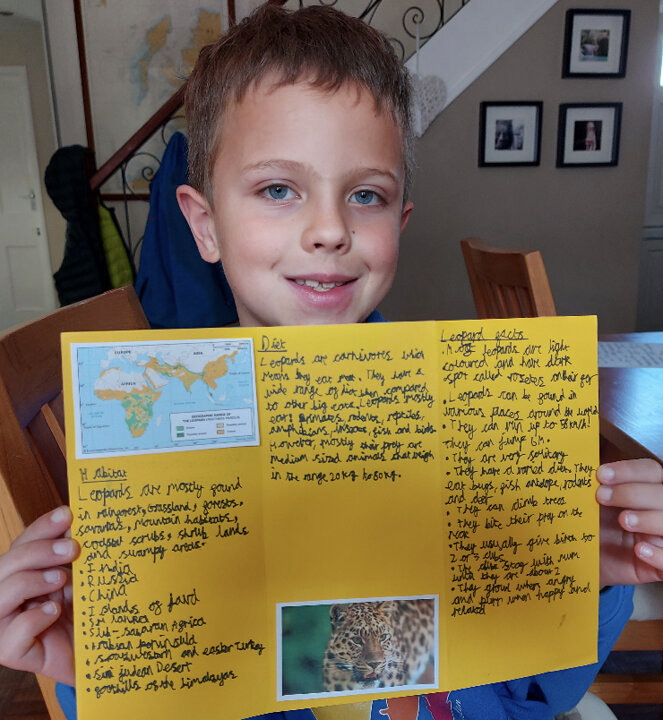 EUROPE
ASIA
AFRICA
GEOGRAPHIC RANGE OF
THE LEOPARD
Habitat
Leopards are mostly found
in rainforest, grassland, forests,
savanas, mountain habitats,
coastal scrubs, shrub lands
and swampy areas.
• India
• Russia
• China
• Islands of Java
• Sri Lanka
• Sub-saharan Africa
• Arabian peninsula
• Southwestern and easter Turkey
• Sini judean Desert
• foothills of the himalayas
Diet
Leopards are carnivores which
means they eat meat. They have a
wide range of diet when compared
to other big cats. Leopards mostly
eat primates, rodents, reptiles,
amphibians, insects, fish and birds.
However, mostly their prey are
medium sized animals that weigh
in the range 20kg to 80kg.
Leopard facts
• Most leopards are light
coloured and have dark
spot called rosetes on their fur
• Leopards can be found in
various places around the world
• They can run up to 58km/h!
They can jump 6m.
• They are very solitary
• They have a varied diet. They
eat bugs, fish antelope, rodents
and deer
• They can climb trees
• They bite their prey on the
neck
• They usually give birth to
2 or 3 cubs
• The cubs stay with mum
until they are about 2
• They growl when angry
and purr when happy and
relaxed